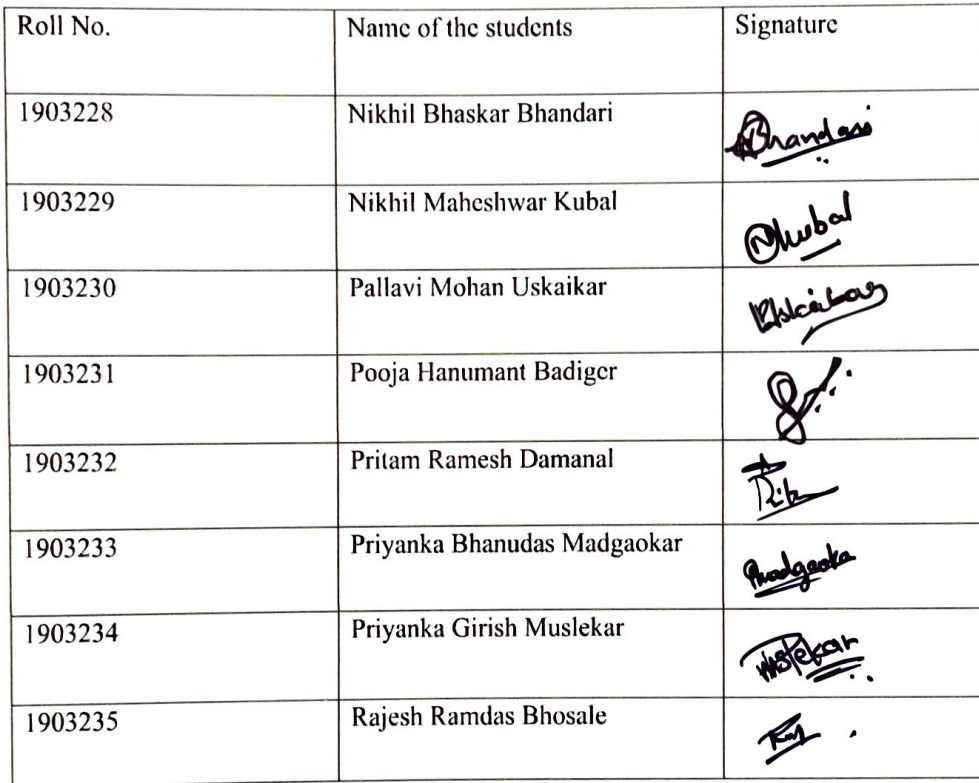 Roll No. Name of the students Signature
1903228 Nikhil Bhaskar Bhandari Bhandari
1903229 Nikhil Maheshwar Kubal NKubal
1903230 Pallavi Mohan Uskaikar Uskaikar
1903231 Pooja Hanumant Badiger
1903232 Pritam Ramesh Damanal
1903233 Priyanka Bhanudas Madgaokar
1903234 Priyanka Girish Muslekar
1903235 Rajesh Ramdas Bhosale